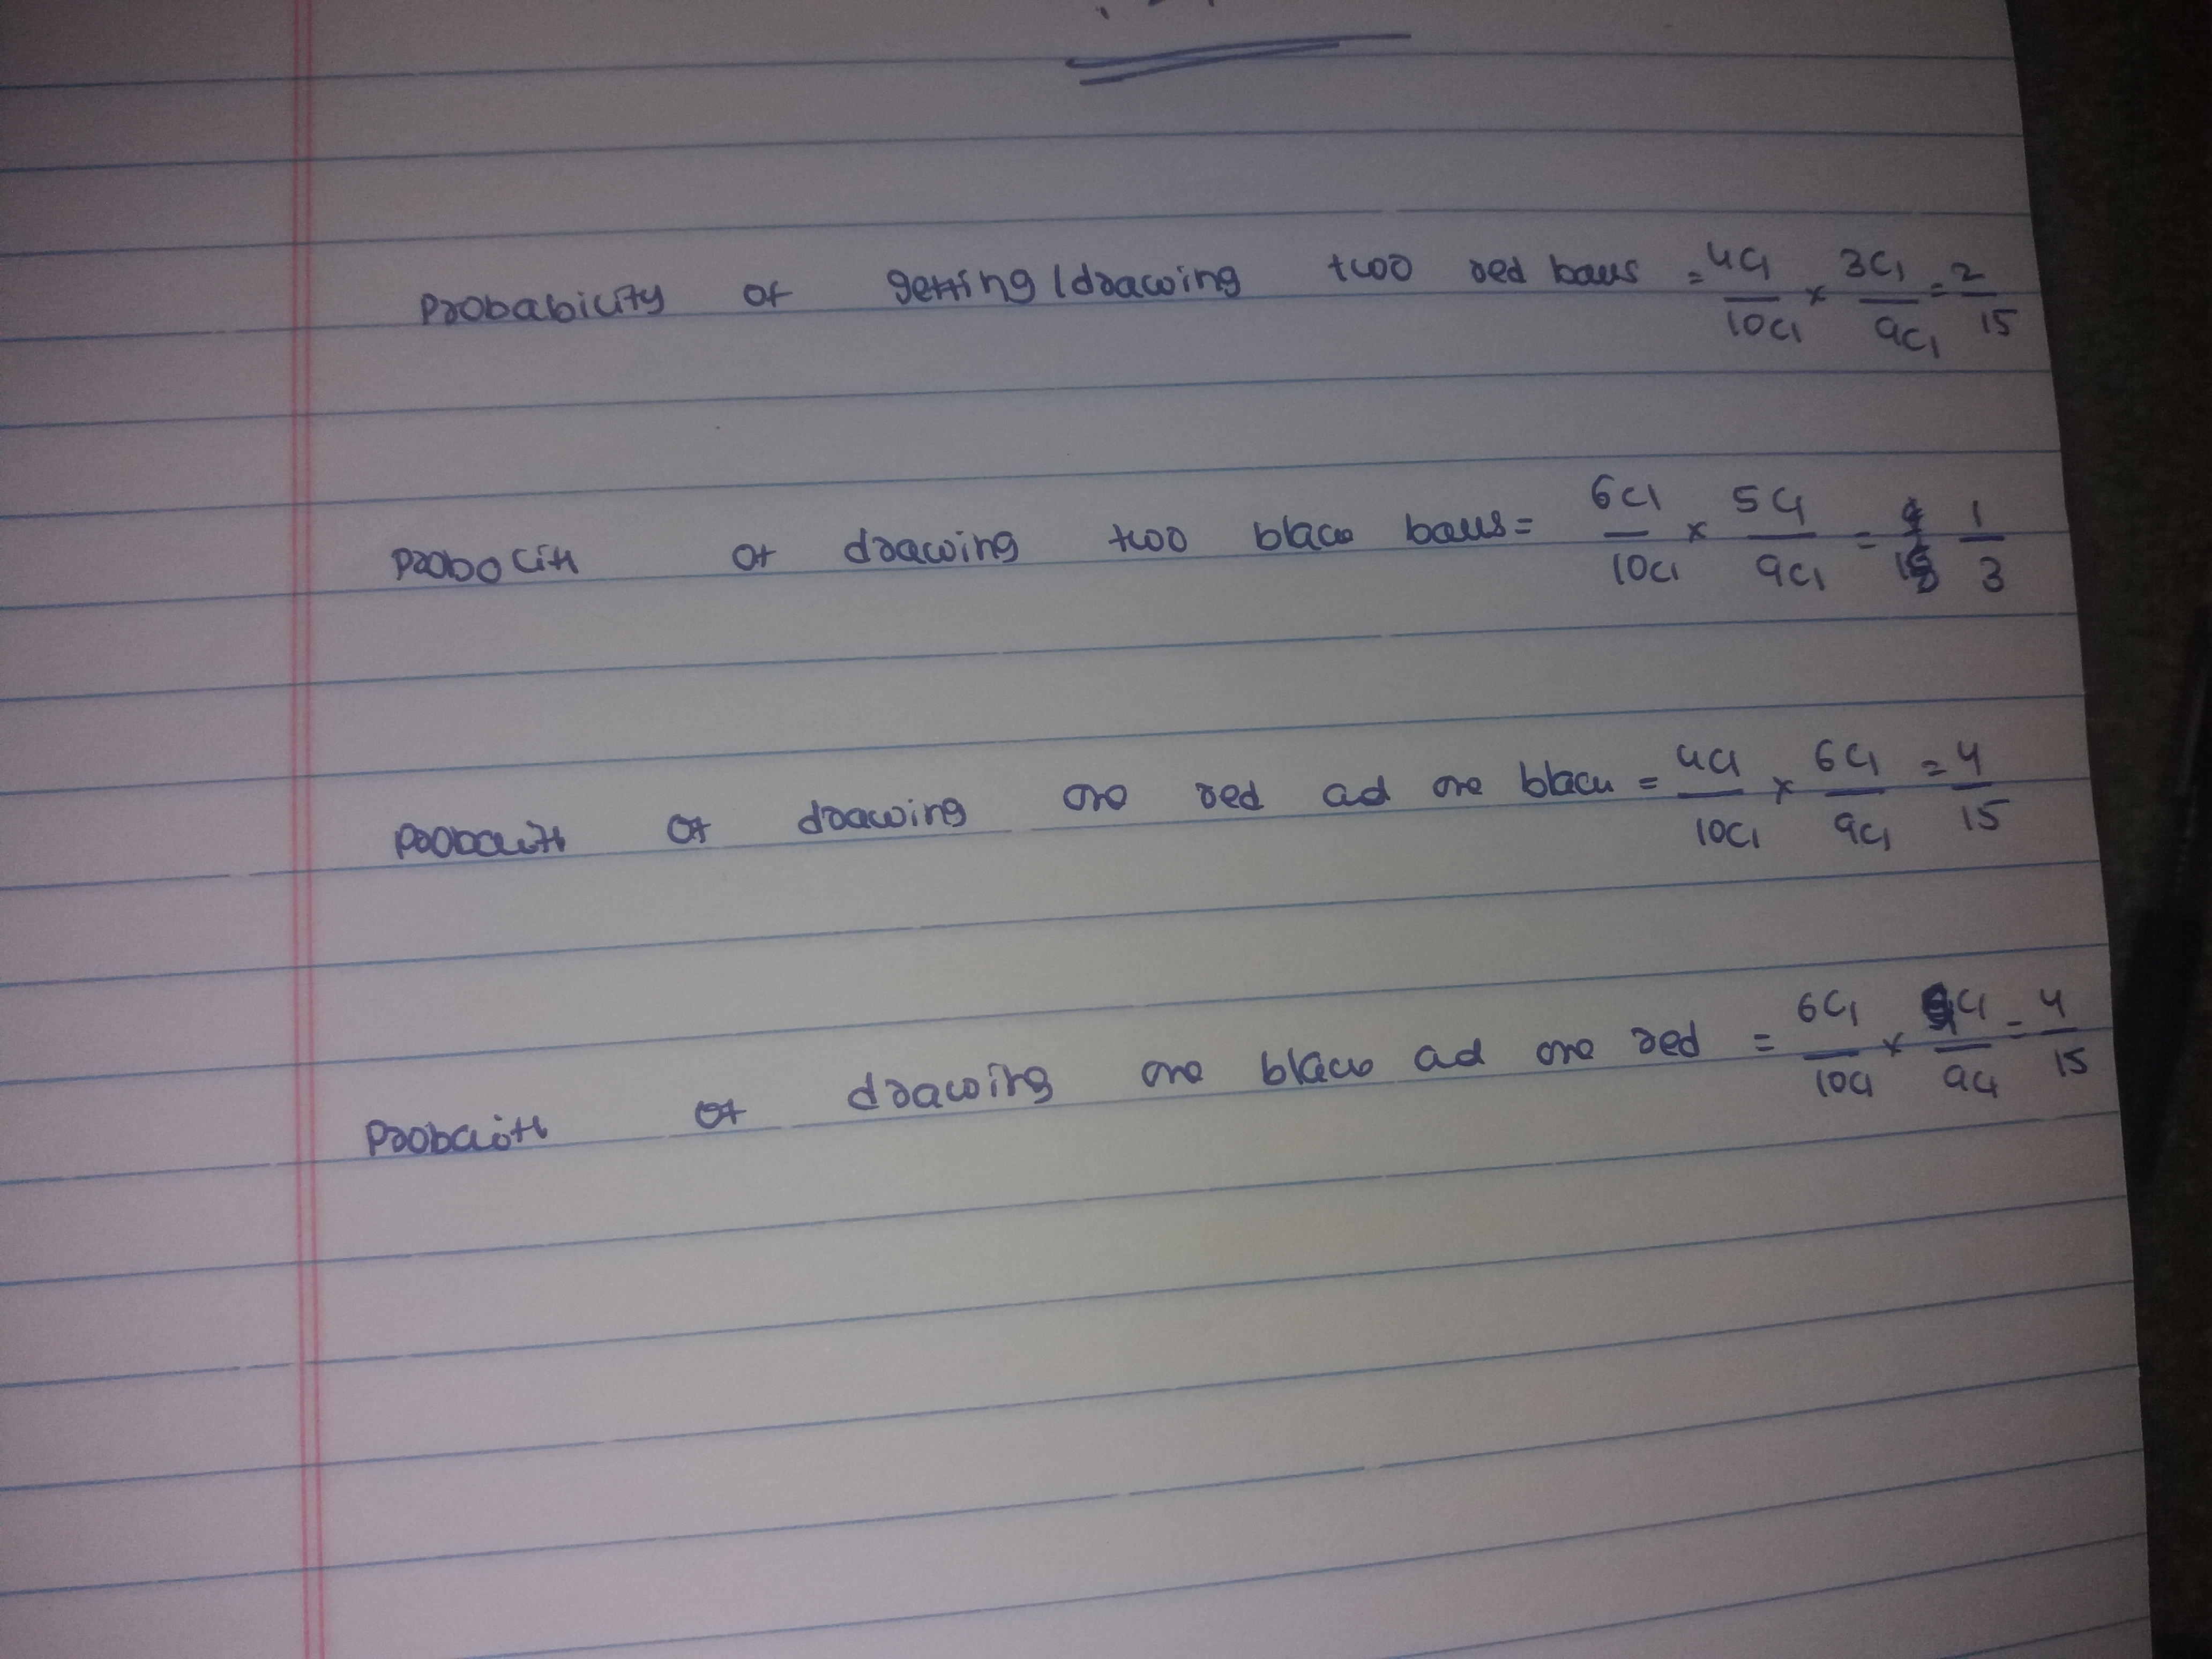 Probability of getting/drawing two red balls = 4C1/10C1 × 3C1/9C1 = 2/15
of drawing two black balls = 6C1/10C1 × 5C1/9C1 = 1/3
of drawing one red ad one black = 4C1/10C1 × 6C1/9C1 = 4/15
of drawing one black ad one red = 6C1/10C1 × 4C1/9C1 = 4/15